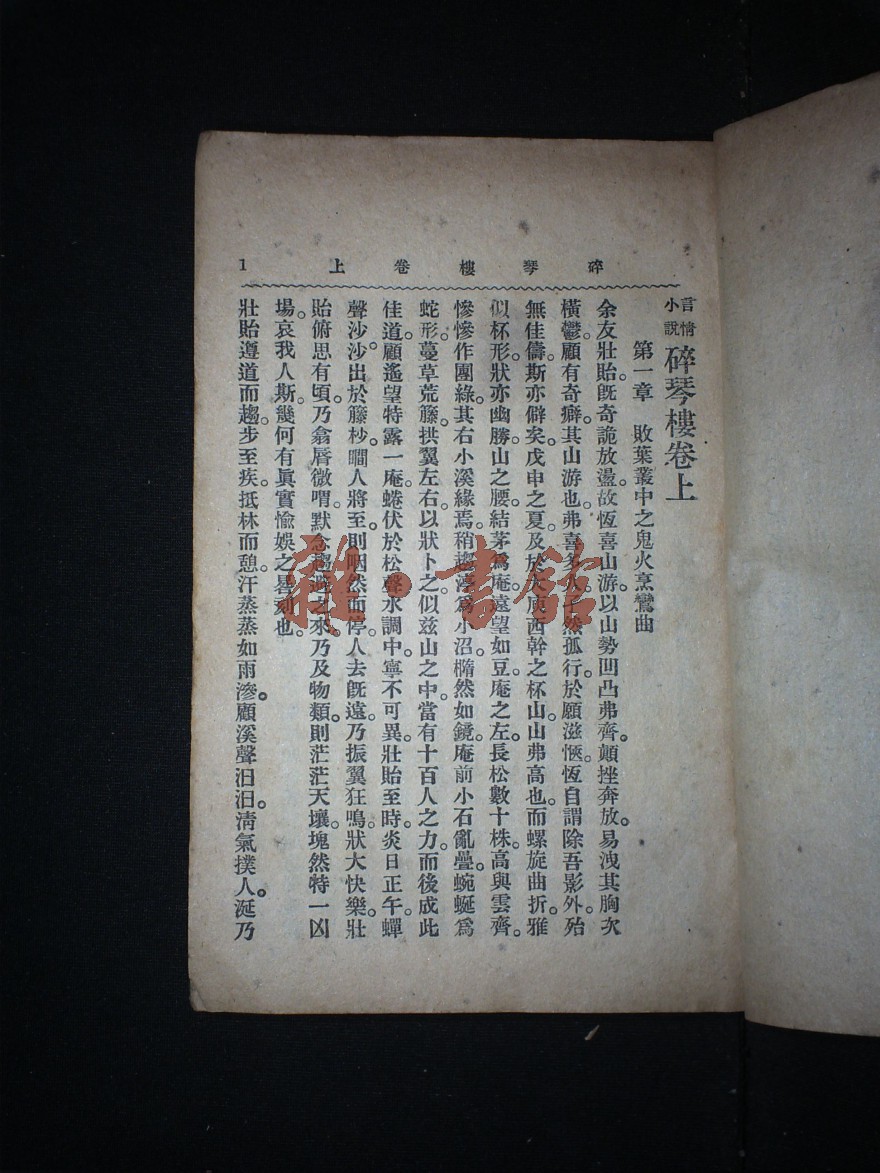 碎琴樓卷上 1
言情小說 碎琴樓卷上
第一章 敗葉叢中之鬼火烹鸞曲
余友壯貽。旣奇詭放盪。故恆喜山游。以山勢凹凸弗齊。顛挫奔放。易洩其胸次
橫鬱。顧有奇癖。其山游也。弗喜多人。孑然孤行。於願滋愜。恆自謂除吾影外。殆
無佳儔。斯亦僻矣。戊申之夏。及於大庾西幹之杯山。山弗高也。而螺旋曲折。雅
似杯形。狀亦幽勝。山之腰。結茅爲庵。遠望如豆。庵之左。長松數十株。高與雲齊。
慘慘作團綠。其右小溪緣焉。稍趨渟爲小沼。橢然如鏡。庵前小石亂疊。蜿蜒爲
蛇形。蔓草荒籐。拱翼左右。以狀卜之。似茲山之中。當有十百人之力。而後成此
佳道。顧遙望特露一庵。蜷伏於松聲水調中。寧不可異。壯貽至時。炎日正午。蟬
聲沙沙。出於籐杪。瞯人將至。則咽然而停。人去旣遠。乃振翼狂鳴。狀大快樂。壯
貽俯思有頃。乃翕唇微喟。默念趨避之來。乃及物類。則茫茫天壤。塊然特一凶
場。哀我人斯。幾何有眞實愉娛之晷刻也。
壯貽遵道而趨。步至疾。抵林而憩。汗蒸蒸如雨滲。顧溪聲汩汩。淸氣撲人。涎乃
雜·書館